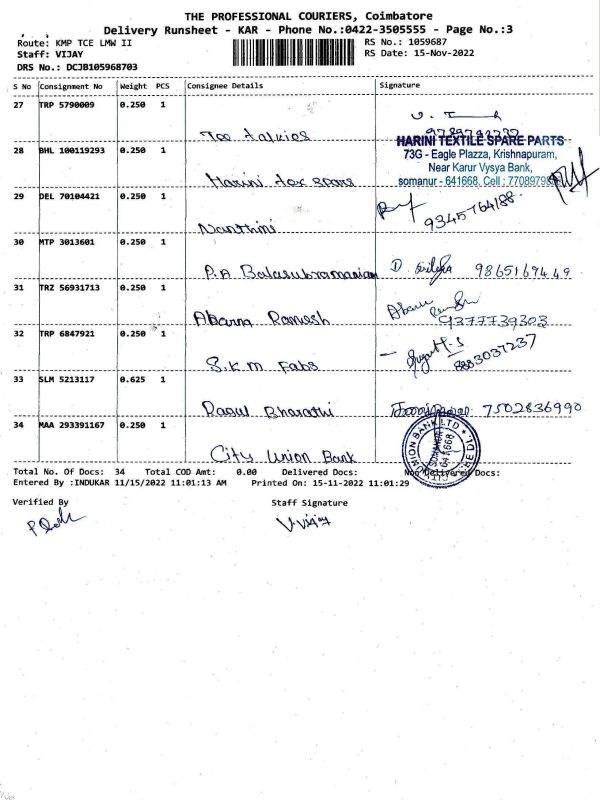 THE PROFESSIONAL COURIERS, Coimbatore
Delivery Runsheet - KAR - Phone No.:0422-3505555 - Page No.:3
Route: KMP TCE LMW II RS No.: 1059687
Staff: VIJAY RS Date: 15-Nov-2022
DRS No.: DCJB105968703
S No Consignment No Weight PCS Consignee Details Signature
27 TRP 5790009 0.250 1
Tee talkies
28 BHL 100119293 0.250 1
HARINI TEXTILE SPARE PARTS
73G - Eagle Plazza, Krishnapuram,
Near Karur Vysya Bank,
somanur - 641668, Cell : 7708979
Harini tex spars
29 DEL 70104421 0.250 1
9345764188
Nanthini
30 MTP 3013601 0.250 1
P.A Balasubramaniam D. 9865169449
31 TRZ 56931713 0.250 1
Abarna Ramesh 9377739303
32 TRP 6847921 0.250 1
S.K.M Fabs 8883037237
33 SLM 5213117 0.625 1
Bharathi 7502836990
34 MAA 293391167 0.250 1
City Union Bank
UNION BANK LTD
SOMANUR
641668
Total No. Of Docs: 34 Total COD Amt: 0.00 Delivered Docs: Non Delivered Docs:
Entered By :INDUKAR 11/15/2022 11:01:13 AM Printed On: 15-11-2022 11:01:29
Verified By Staff Signature
V.Vijay